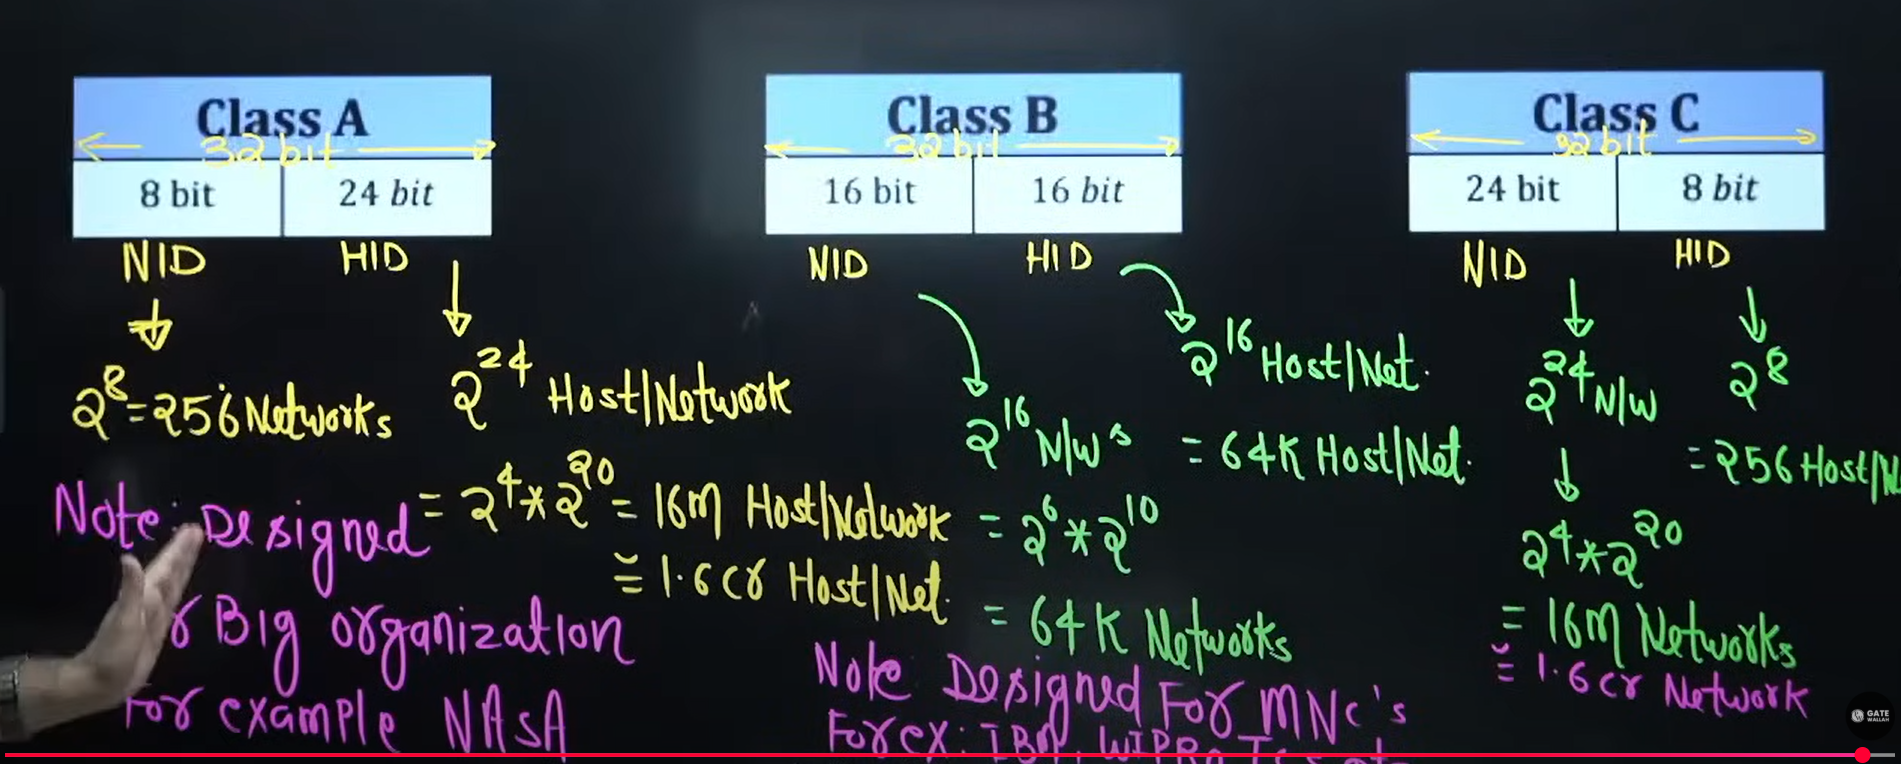 Class A
32 bit
8 bit
24 bit
NID
HID
2^8 = 256 Networks
2^24 Host/Network
= 2^4 * 2^20 = 16M Host/Network
≅ 1.6 cr Host/Net.
Note: Designed
r Big organization
For example NASA
Class B
32 bit
16 bit
16 bit
NID
HID
2^16 N/w s
= 2^6 * 2^10
= 64K Networks
2^16 Host/Net.
= 64K Host/Net.
Note: Designed For MNC's
For ex: IBM, WIPRO
Class C
32 bit
24 bit
8 bit
NID
HID
2^24 N/W
2^4 * 2^20
= 16M Networks
≅ 1.6 cr Network
2^8
= 256 Host/N
GATE
WALLAH